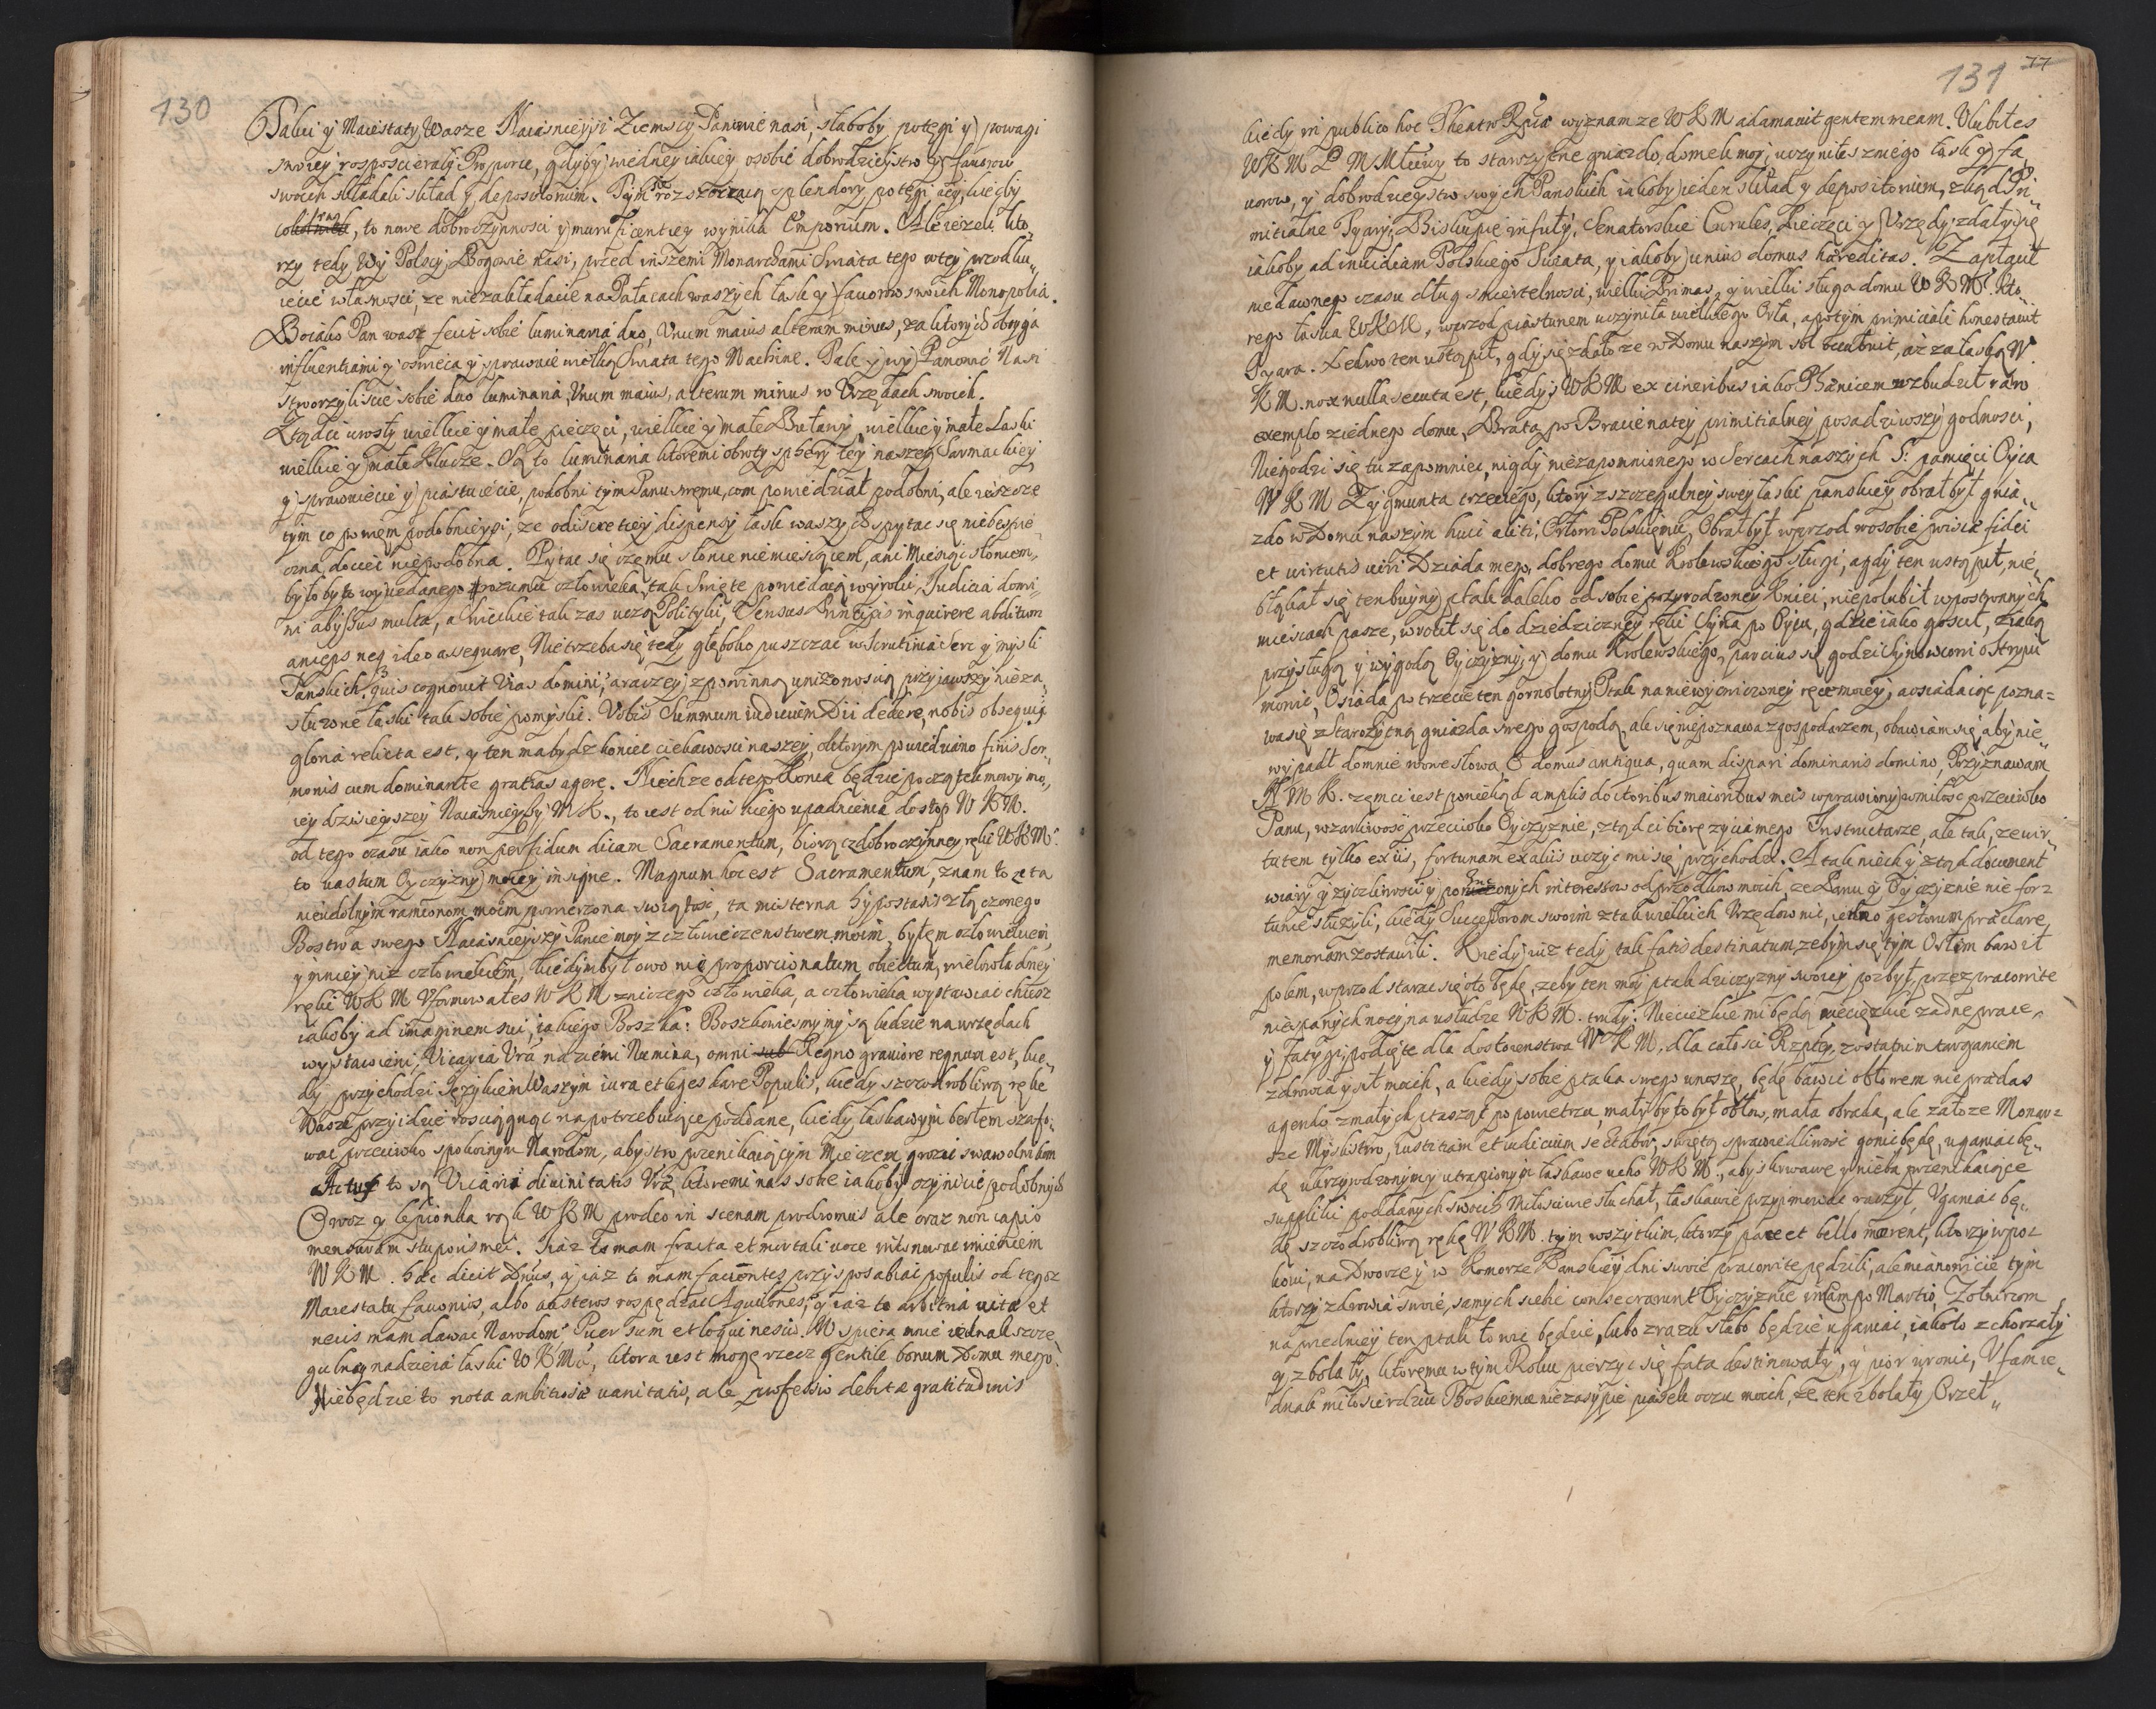 130
Takci y Maiestaty Wasze Naiasnieyszi Ziemscy Panowie nasi, słaboby potęgi y powagi
swoiey rosposcierały Proporce, gdyby w iedney iakiey osobie dobrodzieystw y faworow
swoich składali skład y depositorium. Tym się rozszerzaią splendory potęgi ich, kiedy
co raz, to nowe dobroczynnosci y munificentiey wynika Emporium. Ale iezeli kto„
rzy tedy Wy Polscy Bogowie nasi, przed inszemi Monarchami Swiata tego w tey przodku„
iecie własnosci, ze niezakładacie na Pałacach waszych łask y faworow swoich Monopolia.
Bo iako Pan wasz fecit sobie luminaria duo, Unum maius alterum minus, za ktorych obrygą
influentiami y oswieca y sprawuie wielką Swiata tego Machine. Tak y wy Panowie Nasi
stworzyliscie sobie duo luminaria, Unum maius, alterum minus w Urzędach swoich.
Ztądci urosły wielkie y małe pieczęci, wielkie y małe Buławy, wielkie y małe Laski
wielkie y małe Klucze. Są to luminaria ktoremi obroty sphery tey naszey Sarmackiey
y sprawuiecie y piastuiecie, podobni tym Panu swemu, com powiedział podobni, ale ieszcze
tym co powiem podobnieyszi, ze o discretiey dispensy łask waszych spytac się niebespie„
czna, dociec niepodobna. Pytac się czemu słonce niemiesiącem, ani Miesiąc słoncem,
byłoby to wyuedanego rozumu człowieka, tak Swięte powiedaią wyroki, Iudicia domi„
ni abyssus multa, a wielkie tak zas uczą Polityki, Sensus Principis inquirere abditum
anceps neq ideo assequare, Nietrzeba się tedy głęboko puszczac w Scrutinia Serc y mysli
Panskich, quis cognovit Vias domini, a raczey z powinną unizonoscią przyiąwszy nieza„
słuzone łaski tak sobie pomyslic. Vobis Summum iudicium Dii dedere, nobis obsequij
gloria relicta est, y ten ma bydz koniec ciekawosci naszey, o ktorym powiedziano finis ser„
monis cum dominante gratias agere. Niechze od tego konca będzie początek mowy mo„
iey dzisieyszey Naiasnieyszy M K., to iest od niskiego upadnienia do stop W K M.
od tego czasu iako non perfidum dicam Sacramentum, biorą z dobroczynney ręki WKMci
to vastum Oyczyzny moiey insigne. Magnum hoc est Sacramentum, znam to ze ta
nieudolnym ramionom moim powierzona swiątosc, ta misterna hypostasis złączonego
Bostwa swego Naiasnieyszy Panie moy z człowieczenstwem moim, byłem człowiekiem,
y mniey niz człowiekiem, kiedym był owo nie proporcionatum obiectum, wielowładney
ręki WKM Uformowałes WKM z niczego człowieka, a człowieka wystawiac chcesz
iakoby ad imaginem sui, iakiego Boszka: Boszkowiesmy my są ludzie na urzędach
wystawieni, Vicaria Vra na ziemi Numina, omni Regno graviore regnum est, kie„
dy przychodzi Językiem Waszym iura et leges dare Populis, kiedy szczodrobliwą rękę
Waszę przyidzie rosciągnąc na potrzebuiące poddane, kiedy łaskawym berłem szafo„
wac przeciwko spokoinym Narodom, a bystro przenikaiącym Mieczem grozic swawolnikom
Actus to są Vicarii divinitatis Vrae, ktoremi nas sobie iakoby czynicie podobnych
Owoz y lepionka rąk W K M prodeo in scenam prodromus ale oraz non capio
mensuram stuporis mei. Iaz to mam fracta et mortali voce intonowac imieniem
W K M. haec dicit Dnus, y iaz to mam facientes przysposabiac populis od tegoz
Maiestatu favonios, albo austeros rospędzac Aquilones, y iaz to arbitria vitae et
necis mam dawac Narodom? Puer sum et loqui nescio. Wspiera mnie iednak szcze„
gulna nadzieia łaski W K Mci, ktora iest mogę rzecz gentile bonum Domu mego.
Niebędzie to nota ambitiosae vanitatis, ale professio debitae gratitudinis
131 77
kiedy in publico hoc Theatro Rpcae wyznam ze W K M adamavit gentem meam. Ulubiłes
WKM P N Młciwy to starozytne gniazdo, domek moy, uczyniłes z niego łask y fa„
vorow, y dobrodzieystw swych Panskich iakoby ieden skład y depositorium, zkąd Pri„
mitialne Tyary, Biskupie infuły, Senatorskie Curules, Pieczęci y Urzędy zdały się
iakoby ad invidiam Polskiego Swiata, y iakoby unius domus haereditas. Zapłacił
niedawnego czasu dług smiertelnosci, wielki Primas, y wielki sługa domu W K Mci. Kto„
rego łaska WKM, wprzod piastunem uczyniła wielkiego Orła, a potym primiciali honestavit
Tyara. Ledwo ten ustąpił, gdy się zdało ze w Domu naszym sol occubuit, az za łaską W.
K M. nox nulla secuta est, kiedys WKM ex cineribus iako Phaenicem wzbudził raro
exemplo z iednego domu, Brata po Bracie na tey primitialney posadziwszy godnosci,
Niegodzi się tu zapomniec, nigdy niezapomnionego w Sercach naszych S: pamięci Oyca
W K M Zygmunta trzeciego, ktory z szczegulney swey łaski panskiey obrał był gnia„
zdo w Domu naszym huic aliti, Orłowi Polskiemu, Obrał był wprzod w osobie priscae fidei
et virtutis viri Dziada mego, dobrego domu Krolewskiego sługi, a gdy ten ustąpił, nie„
błąkał się ten buyny ptak daleko od sobie przyrodzoney Kniei, niepolubił w postronnych
mieiscach pasze, wrocił się do dziedziczney ręki Syna po Oycu, gdzie iako goscił, z iaką
przysługą y wygodą Oyczyzny, y domu Krolewskiego, parcius się godzi Synowcowi o Stryiu
mowic, Osiada po trzecie ten gornolotny Ptak na niewycwiczoney ręce moiey, a osiadaiąc pozna=
wa się z starozytną gniazda swego gospodą, ale się niepoznawa z gospodarzem, obawiam się, aby nie„
wypadł do mnie w owe słowa O domus antiqua, quam dispari dominaris domino, Przyznawam
N M K. zemci iest poniekąd amplis doctoribus maioribus meis wprawiony w miłosc przeciwko
Panu, w zarliwosc przeciwko Oyczyznie, ztądci biorę zycia mego Instructarze, ale tak, ze vir„
tutem tylko ex iis, fortunam ex aliis uczyc mi się przychodzi. A tak niech y ztąd document
wiary y zyczliwosci y poruczonych interessow od przodkow moich, ze Panu y Oyczyznie nie for=
tunie słuzyli, kiedy Successorom swoim z tak wielkich Urzędow nic, iedno gestorum praeclare
memoriam zostawili. Kiedy iuz tedy tak fatis destinatum, zebym się tym Orłem bawił
polem, wprzod starac się oto będę, zeby ten moy ptak dziczyzny swoiey pozbył, przez pracowite
niespanych nocy na usłudze WKM. trudy. Niecięzkie mi będą niecięzkie zadne prace,
y fatygi podięte dla dostoienstwa W K M, dla całosci Rzptey, z ostatnim targaniem
zdrowia y sił moich, a kiedy sobie ptaka swego unoszę, będę bawic obłowem nie praedas
agendo z małych ptasząt po powietrzu, mały by to był obłow, mała obrada, ale za to ze Monar=
sze Myslistwo, Iustitiam et iudicium sectabor, swiętą sprawiedliwosc gonic będę, uganiac bę„
dę ukrzywdzonym y utrapionym łaskawe ucho W K M, abys krwawe y nieba przenikaiące
suppliki poddanych swoich miłosciwie słuchał, łaskawie przyimowac raczył, Uganiac bę„
dę szczodrobliwą rękę W K M. tym wszytkim, ktorzy pace et bello merent, ktorzy w poz=
koiu, na Dworze y w Komorze Panskiey dni swoie pracowite pędzili, ale mianowicie tym
ktorzy zdrowia swoie, samych siebie consecrarunt Oyczyznie in Campo Martio, Zołnierzom
na przedniey ten ptak łowic będzie, lubo zrazu słabo będzie uganiac, iako to zchorzały
y zbolały, ktoremu w tym Roku pierzyc się fata destinowały, y pior uronic, Ufam ie„
dnak miłosierdziu Boskiemu niezasypie piasek oczu moich, ze ten zbolały Orzeł„